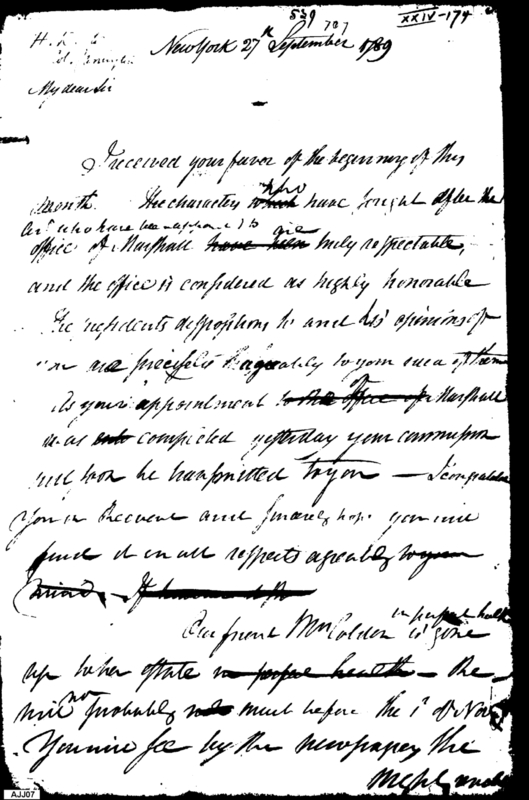 539 787
XXIV-174
New York 27th September 1789
My dear Sir
I received your favor of the beginning of this
month. The characters which who have sought after the
and who have been appointed to
office of Marshall have been are truly respectable,
and the office is considered as highly honorable
The presidents disposition to and his opinions of
you are precisely agreably to your idea of them
As your appointment to the office of Marshall
was completed yesterday your commission
will soon be transmitted to you — I congratulate
you on the event and sincerely hope you will
find it in all respects agreably to your
mind.
Our friend Mrs Colden is gone
in perfect health
up to her estate in perfect health — She
will not probably not meet before the 1st of Novr
You will see by the newspapers the
AJJ07